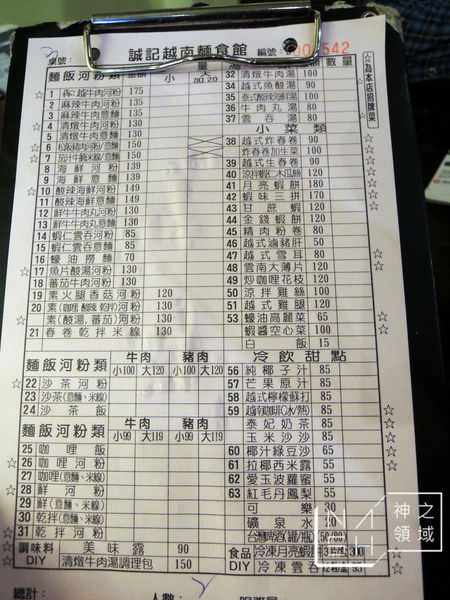 誠記越南麵食館
桌號: 編號: 542
麵飯河粉類 金額 小 大 加20
1 犇.越牛肉河粉 175
2 麻辣牛肉河粉 130
3 麻辣牛肉意麵 135
4 清燉牛肉河粉 130
5 清燉牛肉意麵 135
8 海鮮河粉 130
9 海鮮意麵 139
10 酸辣海鮮河粉 149
11 酸辣海鮮意麵 149
12 鮮牛牛肉丸河粉 130
13 鮮牛牛肉丸意麵
14 蝦仁雲吞河粉 85
15 蝦仁雲吞意麵 85
16 蠔油撈麵 70
17 魚片酸湯河粉 130
18 蕃茄牛肉河粉 130
19 素火腿香菇河粉 120
20 素(咖哩.酸辣.乾拌)河粉 130
素(酸湯.蕃茄)河粉 130
21 春卷乾拌米線 130
麵飯河粉類 牛肉 豬肉
小100 大120 小100 大120
22 沙茶河粉
23 沙茶(意麵、米線)
24 沙茶飯
麵飯河粉類 牛肉 豬肉
小99 大119 小99 大119
25 咖哩飯
26 咖哩河粉
27 咖哩(意麵、米線)
28 鮮河粉
29 鮮(意麵、米線)
30 乾拌(意麵、米線)
31 乾拌河粉
調味料 美味露 90
DIY 清燉牛肉湯調理包 150
總計: 人數:
數量
☆為本店招牌菜
32 清燉牛肉湯 100
34 越式魚酸湯 90
35 泰式酸辣鮮湯 100
36 牛肉丸湯 80
37 雲吞湯 80
小菜類
38 越式炸春卷 90
炸春卷加生菜 100
39 越式生春卷 80
40 涼拌蝦仁木瓜絲 120
41 月亮蝦餅 180
42 蝦味三拼 170
43 甘蔗蝦 120
44 金錢蝦餅 120
45 精肉粉卷 80
46 越式滷豬肝 50
47 越式雪耳 80
48 雲南大薄片 120
49 炒咖哩花枝 120
50 涼拌雞絲 100
51 越式雞腿 120
53 蠔油高麗菜 65
蝦醬空心菜 100
白飯 15
冷飲甜點
56 純椰子汁 85
57 芒果原汁 85
58 越式檸檬蘇打 85
59 越南咖啡(冰/熱) 85
泰妃奶茶 85
玉米沙沙 85
60 椰汁綠豆沙 65
61 拉椰西米露 55
62 愛玉波羅蜜 55
63 紅毛丹鳳梨 55
可樂 30
礦泉水 20
台灣啤酒(罐/瓶) 50/80
食品 冷凍月亮蝦餅
DIY 冷凍雲吞 95
神之領域